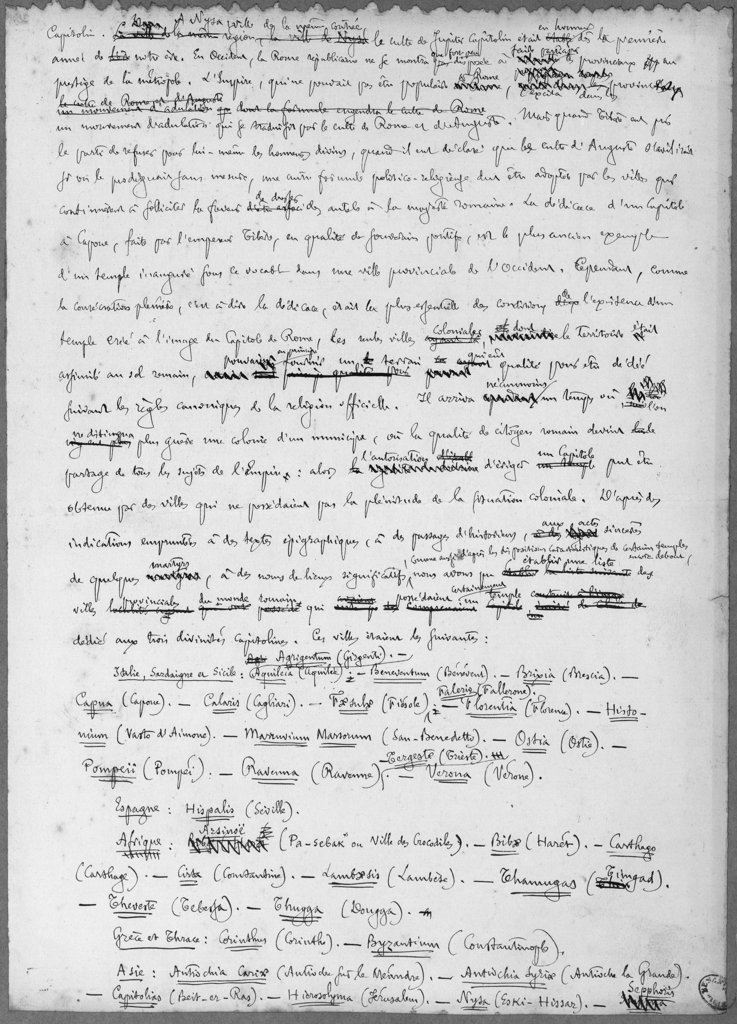 Capitolin. A Nysa, ville de la même contrée, le culte de Jupiter Capitolin était en honneur dès la première
année de notre ère. En Occident, la Rome républicaine ne se montra que fort peu disposée à faire partager aux provinciaux le
prestige de la métropole. L'Empire, qui ne pouvait pas être populaire à Rome, excita dans les provinces
un mouvement d'adulation qui se traduisit par le culte de Rome et d'Auguste. Mais quand Tibère eut pris
le parti de refuser pour lui-même les honneurs divins, quand il eut déclaré que le culte d'Auguste s'avilirait
si on le prodiguait sans mesure, une autre formule politico-religieuse dut être adoptée par les villes qui
continuèrent à solliciter la faveur de dresser des autels à la majesté romaine. La dédicace d'un Capitole
à Capoue, faite par l'empereur Tibère, en qualité de souverain pontife, est le plus ancien exemple
d'un temple inauguré sous ce vocable dans une ville provinciale de l'Occident. Cependant, comme
la consécration plénière, c'est à dire la dédicace, était la plus essentielle des conditions de l'existence d'un
temple érigé à l'image du Capitole de Rome, les seules villes coloniales, dont le territoire était
assimilé au sol romain, pouvaient en principe fournir un terrain qui eût qualité pour être dédié
suivant les règles canoniques de la religion officielle. Il arriva néanmoins un temps où l'on
ne distingua plus guère une colonie d'un municipe, où la qualité de citoyen romain devint le
partage de tous les sujets de l'Empire : alors l'autorisation d'ériger un Capitole put être
obtenue par des villes qui ne possédaient pas la plénitude de la situation coloniale. D'après des
indications empruntées à des textes épigraphiques, à des passages d'historiens, aux actes sincères
de quelques martyrs, à des noms de lieux significatifs, comme aussi d'après les dispositions caractéristiques de certains temples encore debout, nous avons pu établir une liste des
villes provinciales du monde romain qui possédaient certainement un temple
dédié aux trois divinités Capitolines. Ces villes étaient les suivantes :
Agrigentum (Girgenti). —
Italie, Sardaigne et Sicile : Aquileia (Aquilée). — Beneventum (Bénévent). — Brixia (Brescia). —
Capua (Capoue). — Calaris (Cagliari). — Fæsulæ (Fiésole). — Falerio (Fallerone). — Florentia (Florence). — Histo-
nium (Vasto d'Aimone). — Marruvium Marsorum (San-Benedetto). — Ostia (Ostie). —
Pompeii (Pompéi). — Ravenna (Ravenne). — Tergeste (Trieste). — Verona (Vérone).
Espagne : Hispalis (Séville).
Afrique : Arsinoë (Pa-sebak ou Ville des Crocodiles). — Bibæ (Harét). — Carthago
(Carthage). — Cirta (Constantine). — Lambæsis (Lambèse). — Thamugas (Timgad).
— Theveste (Tebessa). — Thugga (Dougga). —
Grèce et Thrace : Corinthus (Corinthe). — Byzantium (Constantinople).
Asie : Antiochia Cariæ (Antioche sur le Méandre). — Antiochia Syriæ (Antioche la Grande).
— Capitolias (Beit-er-Ras). — Hierosolyma (Jérusalem). — Nysa (Eski-Hissar). — Sepphoris